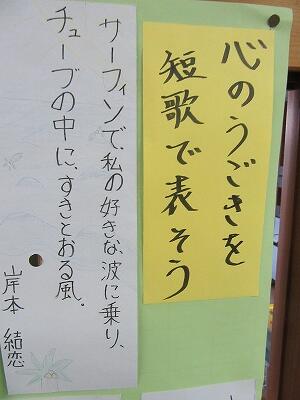 心のうごきを
短歌で表そう
サーフィンで、私の好きな、波に乗り、
チューブの中に、すきとおる風。
岸本 結恋